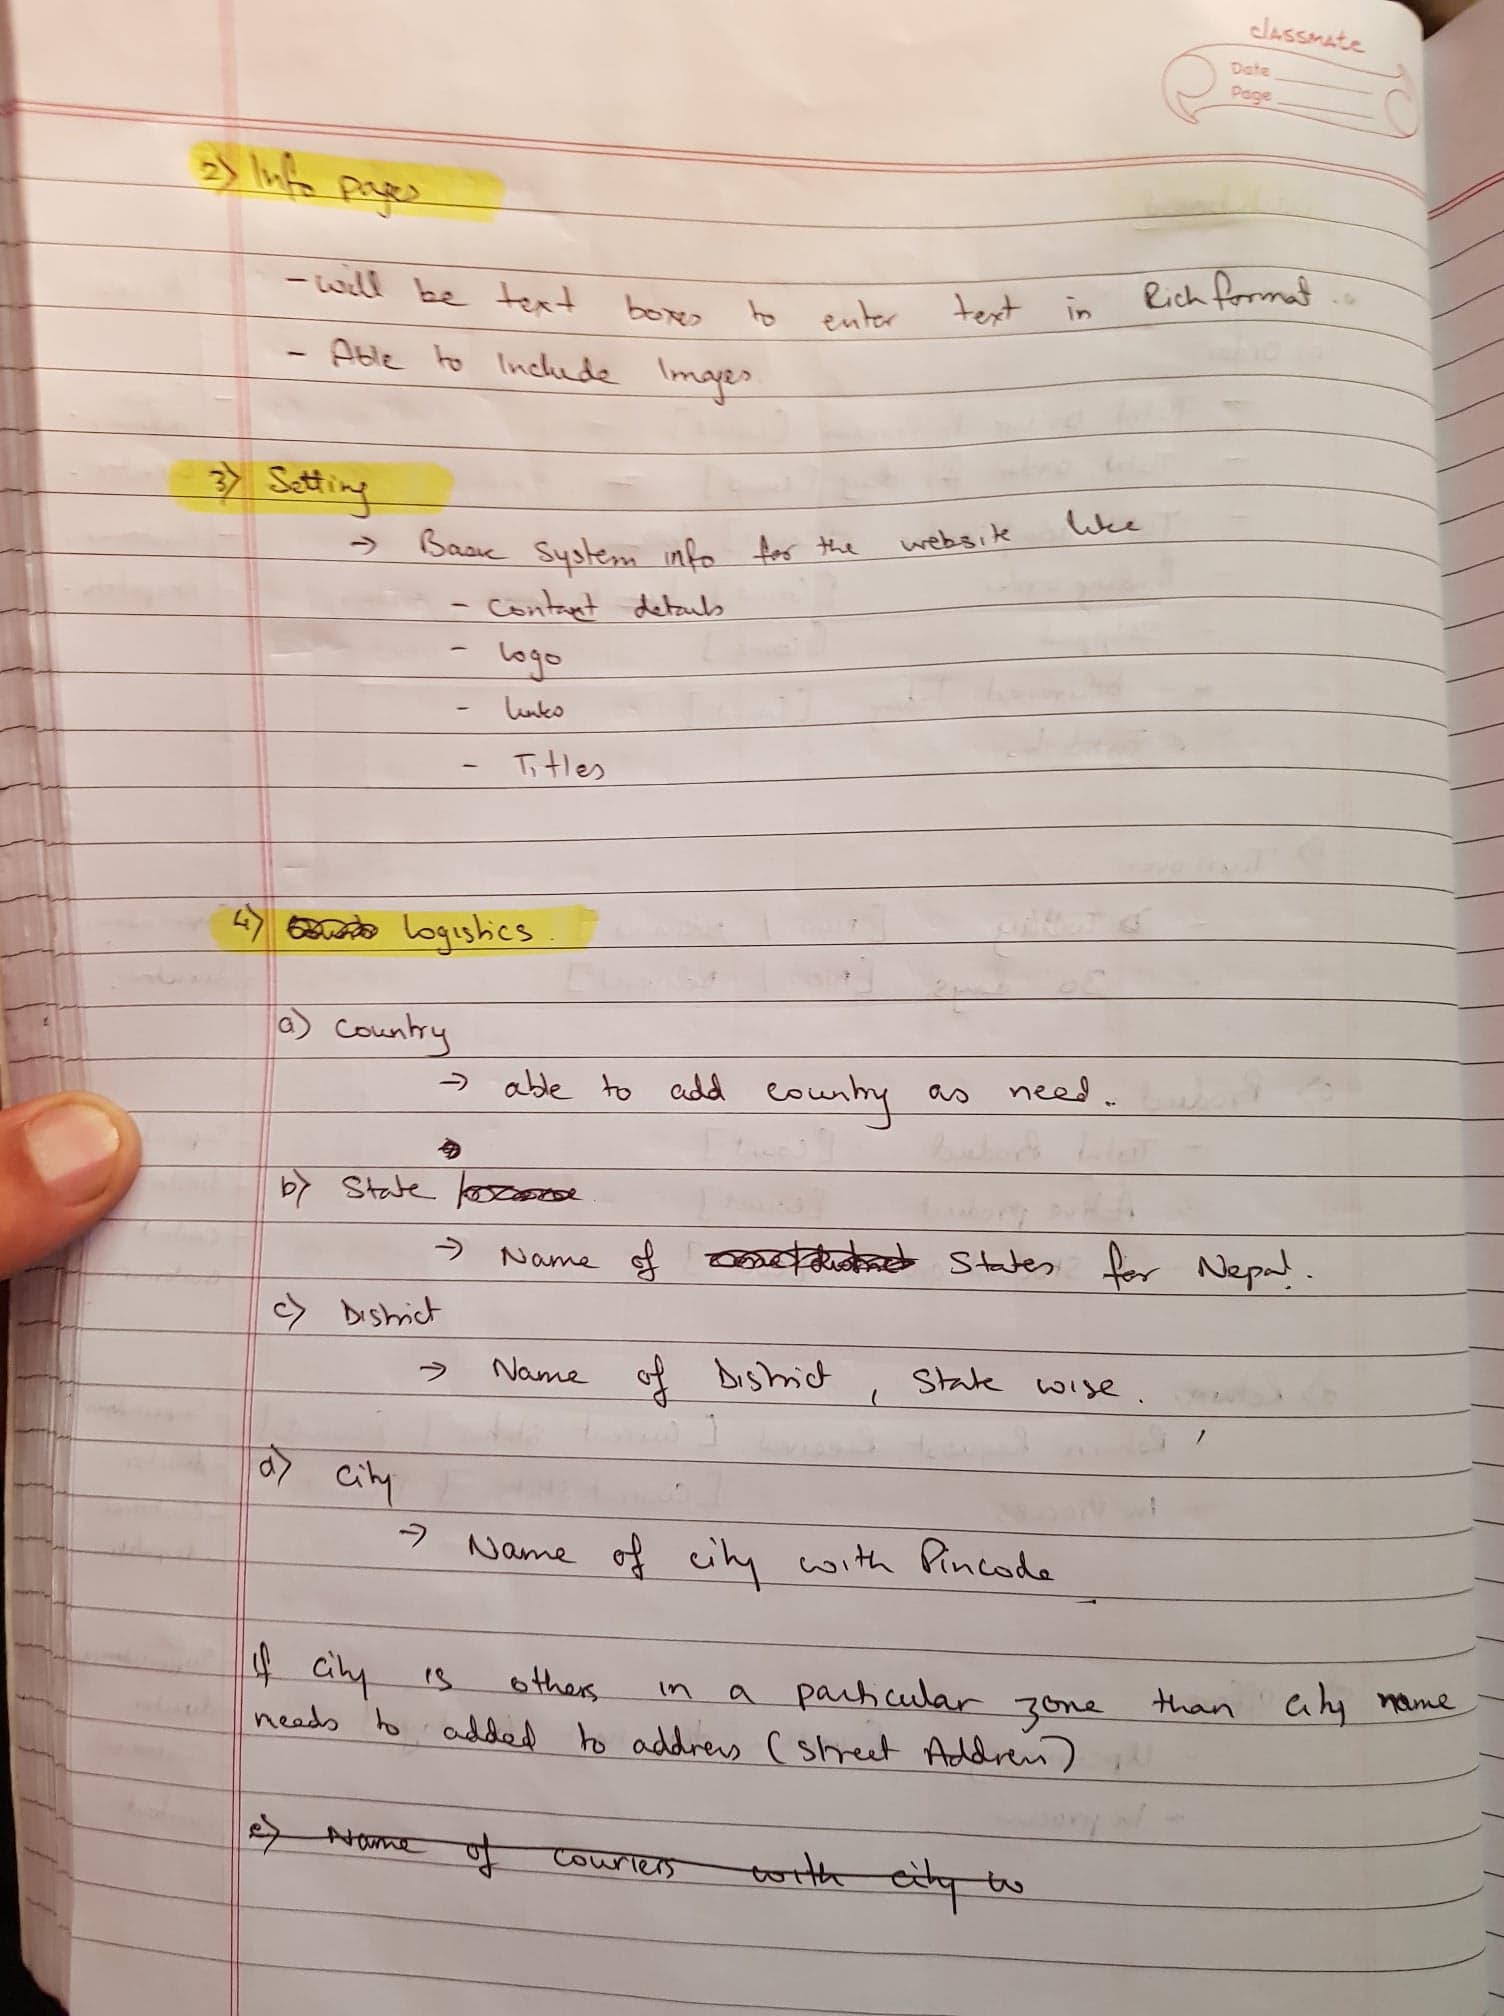 classmate
Date
Page
2) Info pages
- will be text boxes to enter text in Rich format.
- Able to Include Images
3) Setting
→ Basic System info for the website like
- Contact details
- logo
- links
- Titles
4) logistics.
a) Country
→ able to add country as need..
b) State
→ Name of States for Nepal.
c) District
→ Name of District, State wise.
d) City
→ Name of city with Pincode
If city is others in a particular zone than city name
needs to added to address (Street Address)
e) Name of couriers with city w